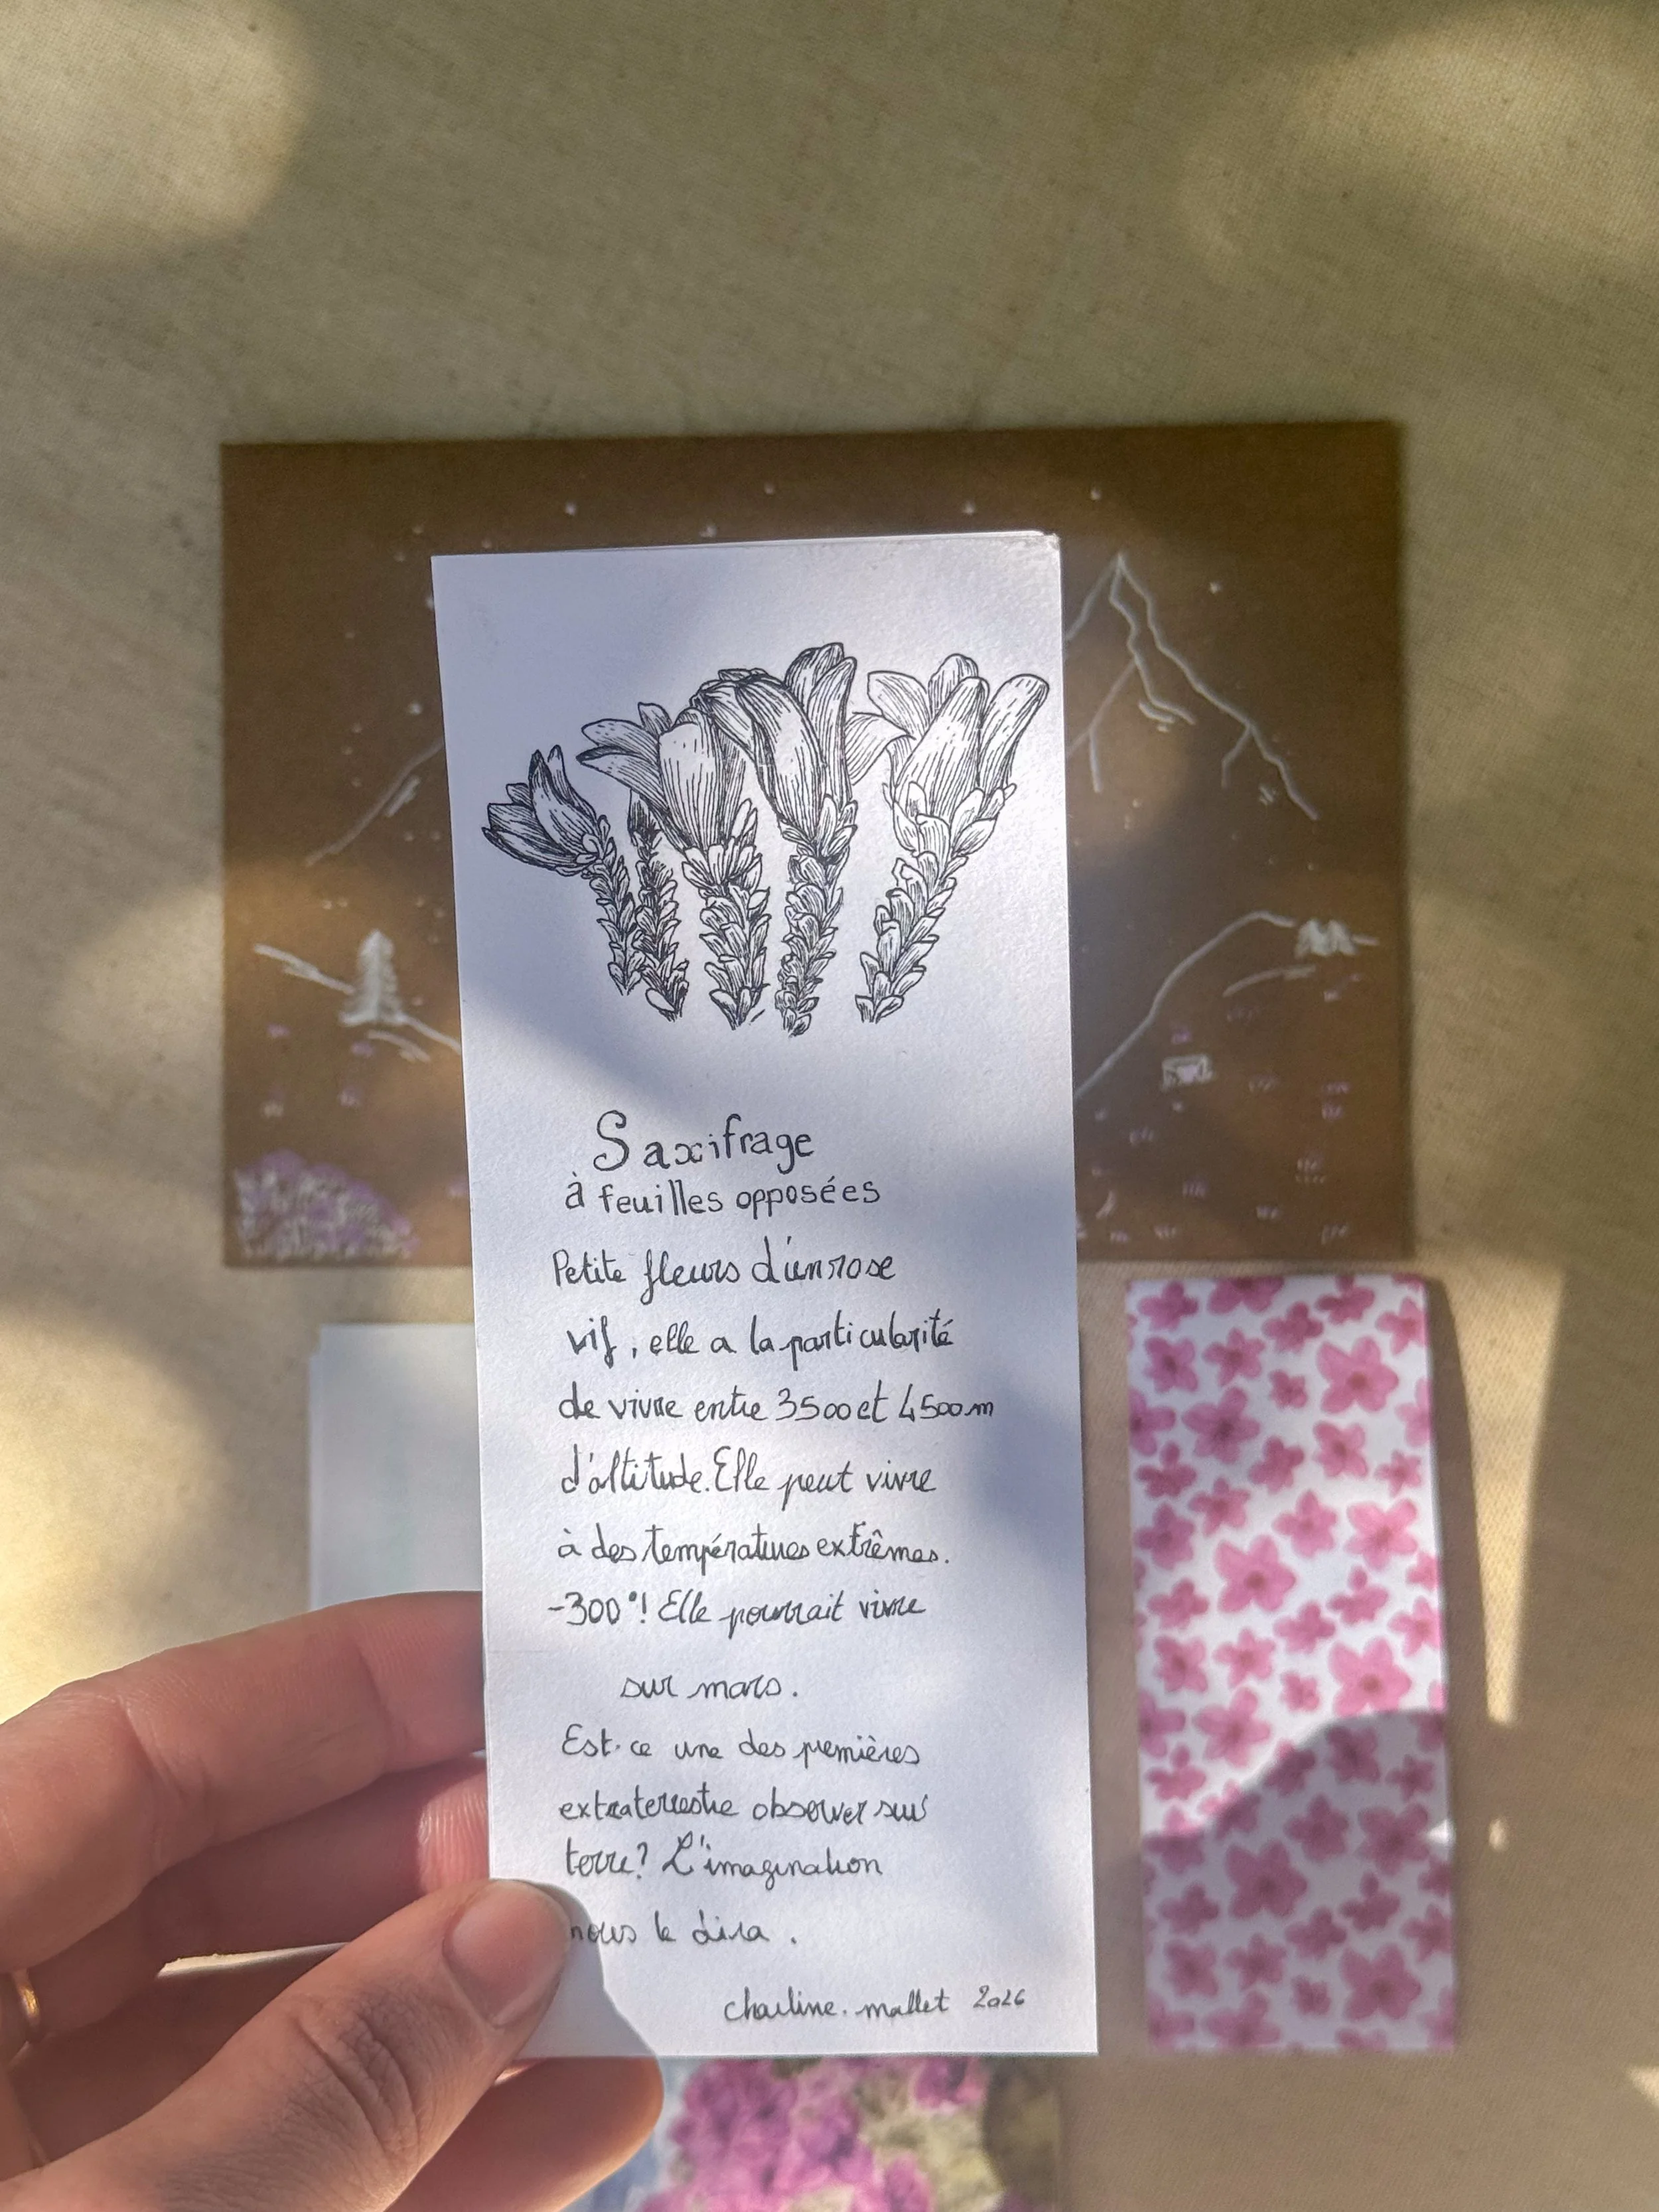 Saxifrage
à feuilles opposées
Petite fleurs d'un rose
vif, elle a la particularité
de vivre entre 3500 et 4500m
d'altitude. Elle peut vivre
à des températures extrêmes.
-300°! Elle pourrait vivre
sur mars.
Est-ce une des premières
extraterrestre observer sur
terre? L'imagination
nous le dira.
charline.mallet 2026